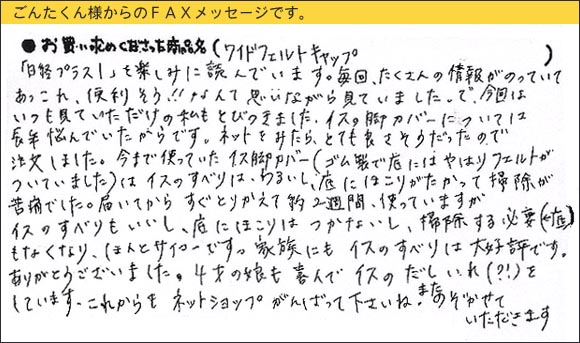 ごんたくん様からのＦＡＸメッセージです。
●お買い求めくださった商品名（ワイドフェルトキャップ　　　）
「日経プラス1」を楽しみに読んでいます。毎回、たくさんの情報がのっていて
あっこれ、便利そう!!なんて思いながら見ていました。で、今回は
いつも見ていただけの私もとびつきました。イスの脚カバーについては
長年悩んでいたからです。ネットをみたら、とても良さそうだったので
注文しました。今まで使っていたイス脚カバー（ゴム製で底にはやはりフェルトが
ついていました）はイスのすべりは、わるいし、底にほこりがたかって掃除が
苦痛でした。届いてからすぐとりかえて約2週間、使っていますが
イスのすべりもいいし、底にほこりはつかないし、掃除する必要（←底）
もなくなり、ほんとサイコーですっ家族にもイスのすべりは大好評です。
ありがとうございました。4才の娘も喜んでイスのだしいれ（?!）を
しています。これからもネットショップがんばって下さいね。またのぞかせて
いただきます